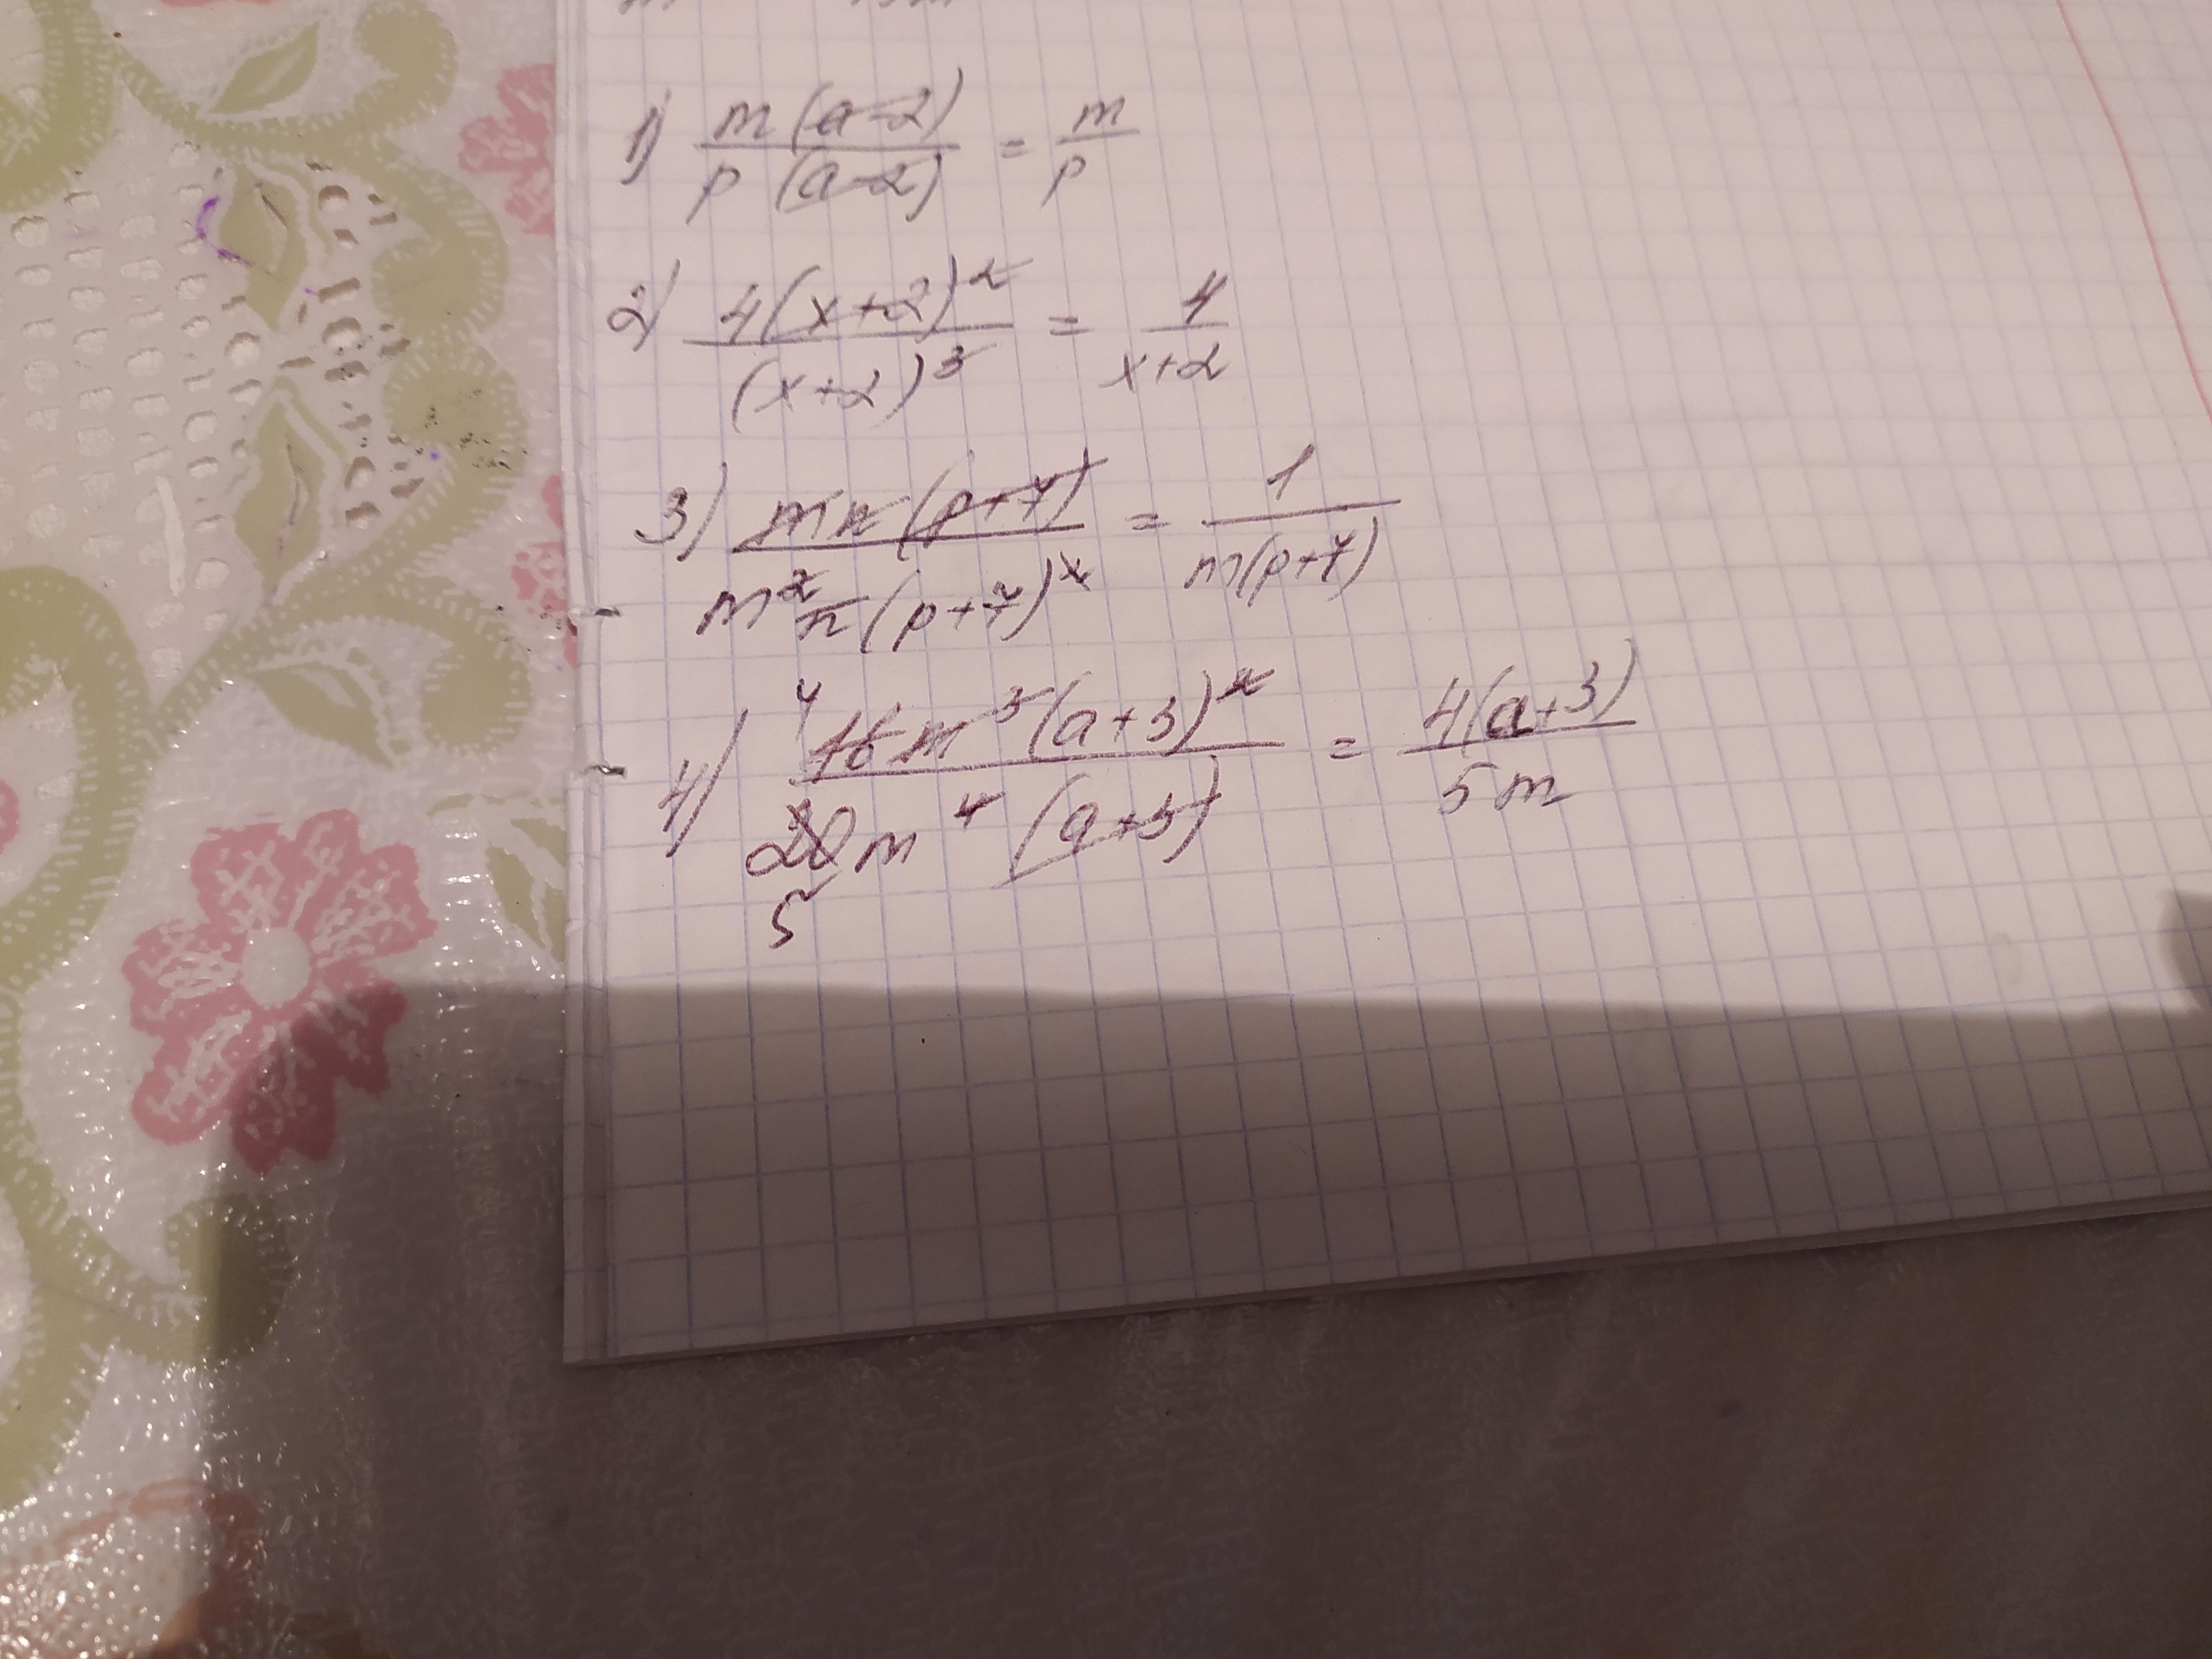 1) m(a-2)/p(a-2) = m/p
2) 4(x+2)²/(x+2)³ = 4/x+2
3) mn(p+7)/m²n(p+7)² = 1/m(p+7)
4) 4 16m³(a+3)²/20m⁴(a+3) = 4(a+3)/5m
5